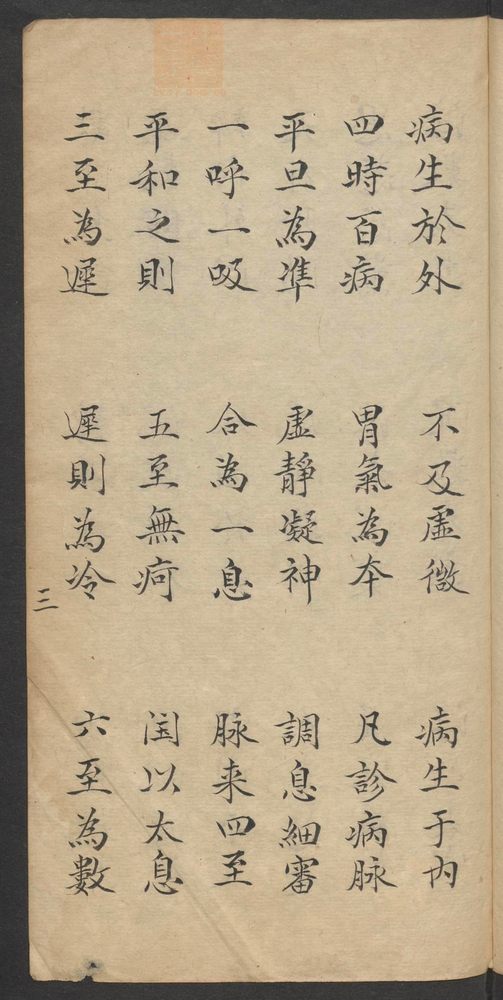 病生於外 不及虛微 病生于内
四時百病 胃氣為本 凡診病脉
平旦為準 虛靜凝神 調息細審
一呼一吸 合為一息 脉来四至
平和之則 五至無疴 闰以太息
三至為遲 遲則為冷 六至為數
三